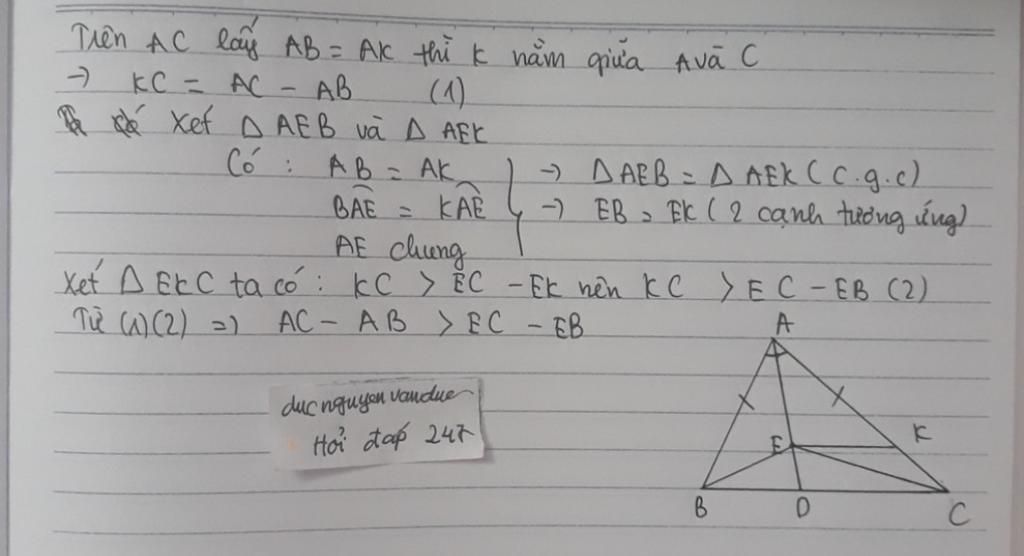 Trên AC lấy AB = AK thì K nằm giữa A và C
→ KC = AC - AB (1)
Xét Δ AEB và Δ AEK
Có : AB = AK → Δ AEB = Δ AEK ( c.g.c)
BÂE = KÂE → EB = EK ( 2 cạnh tương ứng)
AE chung
Xét Δ EKC ta có : KC > EC - EK nên KC > EC - EB (2)
Từ (1)(2) => AC - AB > EC - EB
A
ducnguyenvanduc
Hỏi đáp 247
K
E
B D C